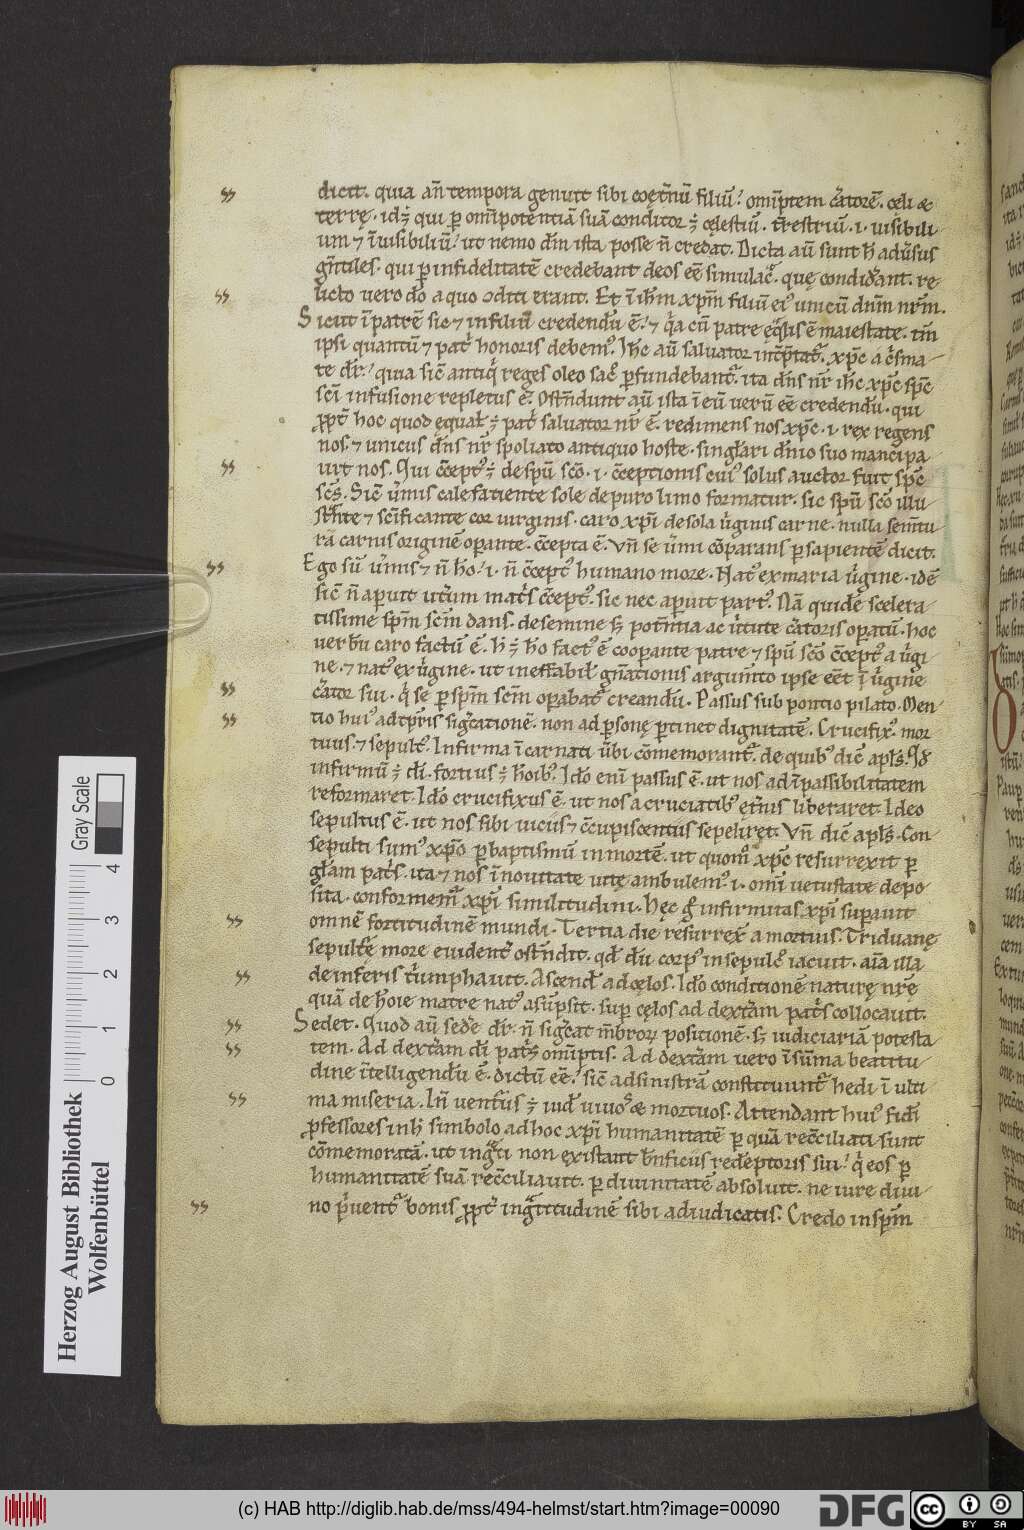 dicit. quia an̄ tempora genuit sibi coęt̄nū filiū. om̄iptem c̄atorē. cęli &
terrę. idÿ qui ꝑ om̄ipotentiā suā conditor ÷ cęlestiū. t̄restriū .i. uisibili
um ⁊ īuisibiliū. ut nemo dm̄ ista posse n̄ credat. Dicta aū sunt h̄ aduſus
gn̄tiles. qui ꝑ infidelitatē credebant deos eē simulac̄. quę condiđant. re
licto uero dō a quo ɔditi erant. Et ī ihm̄ xpm̄ filiū eiꝰ unicū dnm̄ nrm̄.
Sicut ī patrē sic ⁊ in filiū credendū ē. ⁊ q̄a cū patre ęq̄lis ē maiestate. tm̄
ipsi quantū ⁊ pat̄ honoris debemꝰ. Ihc̄ aū saluator int̄p̄tat̄. xpc̄ a c̄sma
te dr̄. quia sic̄ antiq̄ reges oleo sac̄ ꝑfundebant̄. ita dn̄s nr̄ ihc̄ xpc̄ spc̄
sci infusione repletus ē. Ostn̄dunt aū ista ī eū uerū eē credendū. qui
ꝓpt̄ hoc quod ęqualꝰ ÷ pat̄ saluator nr̄ ē. redimens nos xpc̄ .i. rex regens
nos. ⁊ unicus dn̄s nr̄ spoliato antiquo hoste. singl̄ari dn̄io suo mancipa
uit nos. Qui cc̄eptꝰ ÷ de spū scō .i. cc̄eptionis cuiꝰ solus auctor fuit spc̄
scs̄. Sic̄ ūmis calefatiente sole de puro limo formatur. sic spū scō illu
st̄nte ⁊ scīficante cor uirginis. caro xpī de sola ūginis carne. nulla sem̄tu
rā carnis originē oꝑante. cc̄epta ē. Vn̄ se ūmi cōparans ꝑ sapientē dicit.
Ego sū ūmis ⁊ n̄ hō .i. n̄ cc̄eptꝰ humano more. Natꝰ ex maria ūgine. idē
sic̄ n̄ aperuit ut̄um mat̄s cc̄eptꝰ. sic nec aperuit partꝰ. Nā quidē scelera
tissime spm̄ scm̄ dans. de semine sʒ potn̄tia ac ūtute c̄atoris oꝑatū. hoc
uerbū caro factū ē. h̄ ÷ hō factꝰ ē cooꝑante patre ⁊ spū scō cc̄eptꝰ a ūgi
ne. ⁊ natꝰ ex ūgine. ut ineffabilꝰ gn̄ationis argum̄to ipse eēt ī ūgine
c̄ator sui. q̄ se ꝑ spm̄ scm̄ oꝑabat̄ creandū. Passus sub pontio pilato. Men
tio huiꝰ ad tp̄ris sigc̄ationē. non ad ꝑsonę ꝑtinet dignitatē. Crucifixꝰ. mor
tuus. ⁊ sepultꝰ. Infirma ī carnati ūbi cōmemorant̄. de quibꝰ dic̄ apls̄. Qđ
infirmū ÷ dī. fortius ÷ hōibꝰ. Idō enī passus ē. ut nos ad īpassibilitatem
reformaret. Idō crucifixus ē. ut nos a cruciatibꝰ et̄nis liberaret. Ideo
sepultus ē. ut nos sibi uicius ⁊ cc̄upiscentiis sepeliret. Vn̄ dic̄ apls̄. Con
sepulti sumꝰ xpō ꝑ baptismū in mortē. ut quomō xpc̄ resurrexit ꝑ
gl̄am pat̄s. ita ⁊ nos ī nouitate uitę ambulemꝰ .i. omī uetustate depo
sita. conformem̄ xpī similitudini. Hęc ḡ infirmitas xpī suꝑauit
omnē fortitudinē mundi. Tertia die resurrex̄ a mortuis. Triduanę
sepult̄ę more euident̄ ostn̄dit. qđ dū corpꝰ in sepulc̄ iacuit. aīa illa
de inferis t̄umphauit. Ascendꝰ ad cęlos. Idō conditionē naturę nrę̄
quā de hōie matre natꝰ asūpsit. suꝑ cęlos ad dext̄am pat̄s collocauit.
Sedet. Quod aū sede̅ dr̄. n̄ sigc̄at m̄broꝝ positionē. sʒ iudiciariā potesta
tem. Ad dext̄am dī pat̄s om̄iptis. Ad dext̄am uero ī sūma beatitu
dine ītelligendū ē. dictū eē. sic̄ ad sinistrā constituunt̄ hedi ī ulti
ma miseria. In̄ uent̄us ÷ iudꝰ uiuos & mortuos. Attendant huiꝰ fidī
ꝓfessores in h̄ simbolo ad hoc xpī humanitatē ꝑ quā recc̄iliati sunt
cōmemoratā. ut inḡti non existant bn̄ficiis redēptoris sui. q̄ eos ꝑ
humanitatē suā recc̄iliauit. ꝑ diuinitatē absoluit. ne iure diui
no p̄uent̄ bonis ꝓpt̄ inḡtitudinē sibi adiudicatis. Credo in spm̄
Herzog August Bibliothek
Wolfenbüttel
Gray Scale
0 1 2 3 4
(c) HAB http://diglib.hab.de/mss/494-helmst/start.htm?image=00090
DFG
cc BY SA